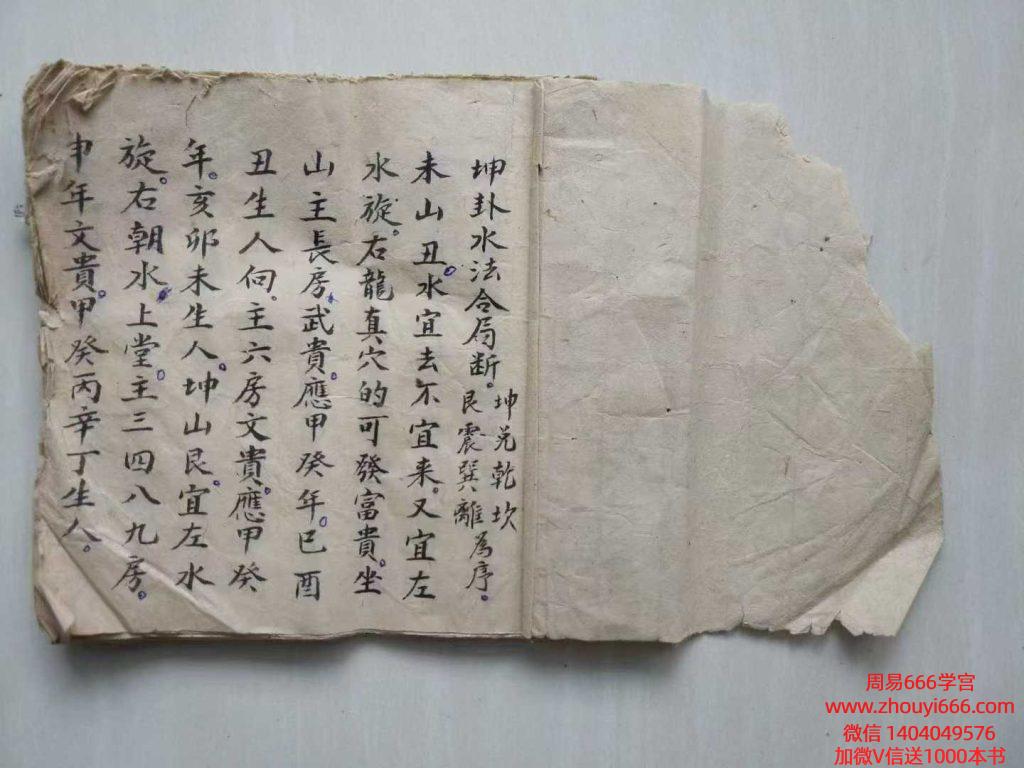 坤卦水法合局断。坤兑乾坎
艮震巽離為序。
未山丑。水宜去不宜来。又宜左
水旋。右龍真穴的可發富貴。坐
山主長房。武貴。應甲癸年。巳酉
丑生人伺。主六房文貴。應甲癸
年。亥卯未生人。坤山艮。宜左水
旋。右朝水。上堂。主三四八九房。
申年文貴。甲癸丙辛丁生人。
周易666学宫
www.zhouyi666.com
微信 1404049576
加微V信送1000本书